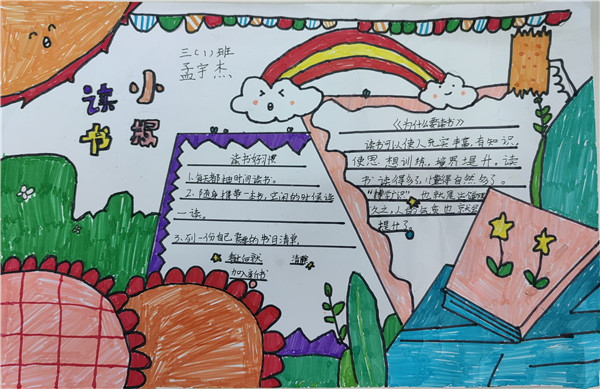 三(1)班
孟宇杰
读书小报
读书好习惯
1.每天都抽时间读书。
2.随身携带一本书,空闲的时候读
一读。
3.列一份自己要读的书目清单,
清静
加入新书
《为什么要读书》
读书可以使人充实丰富,有知识,
使思想训练,境界提升,读
书读得多了,懂得自然多了。
久之,人的气质也就
提升了。